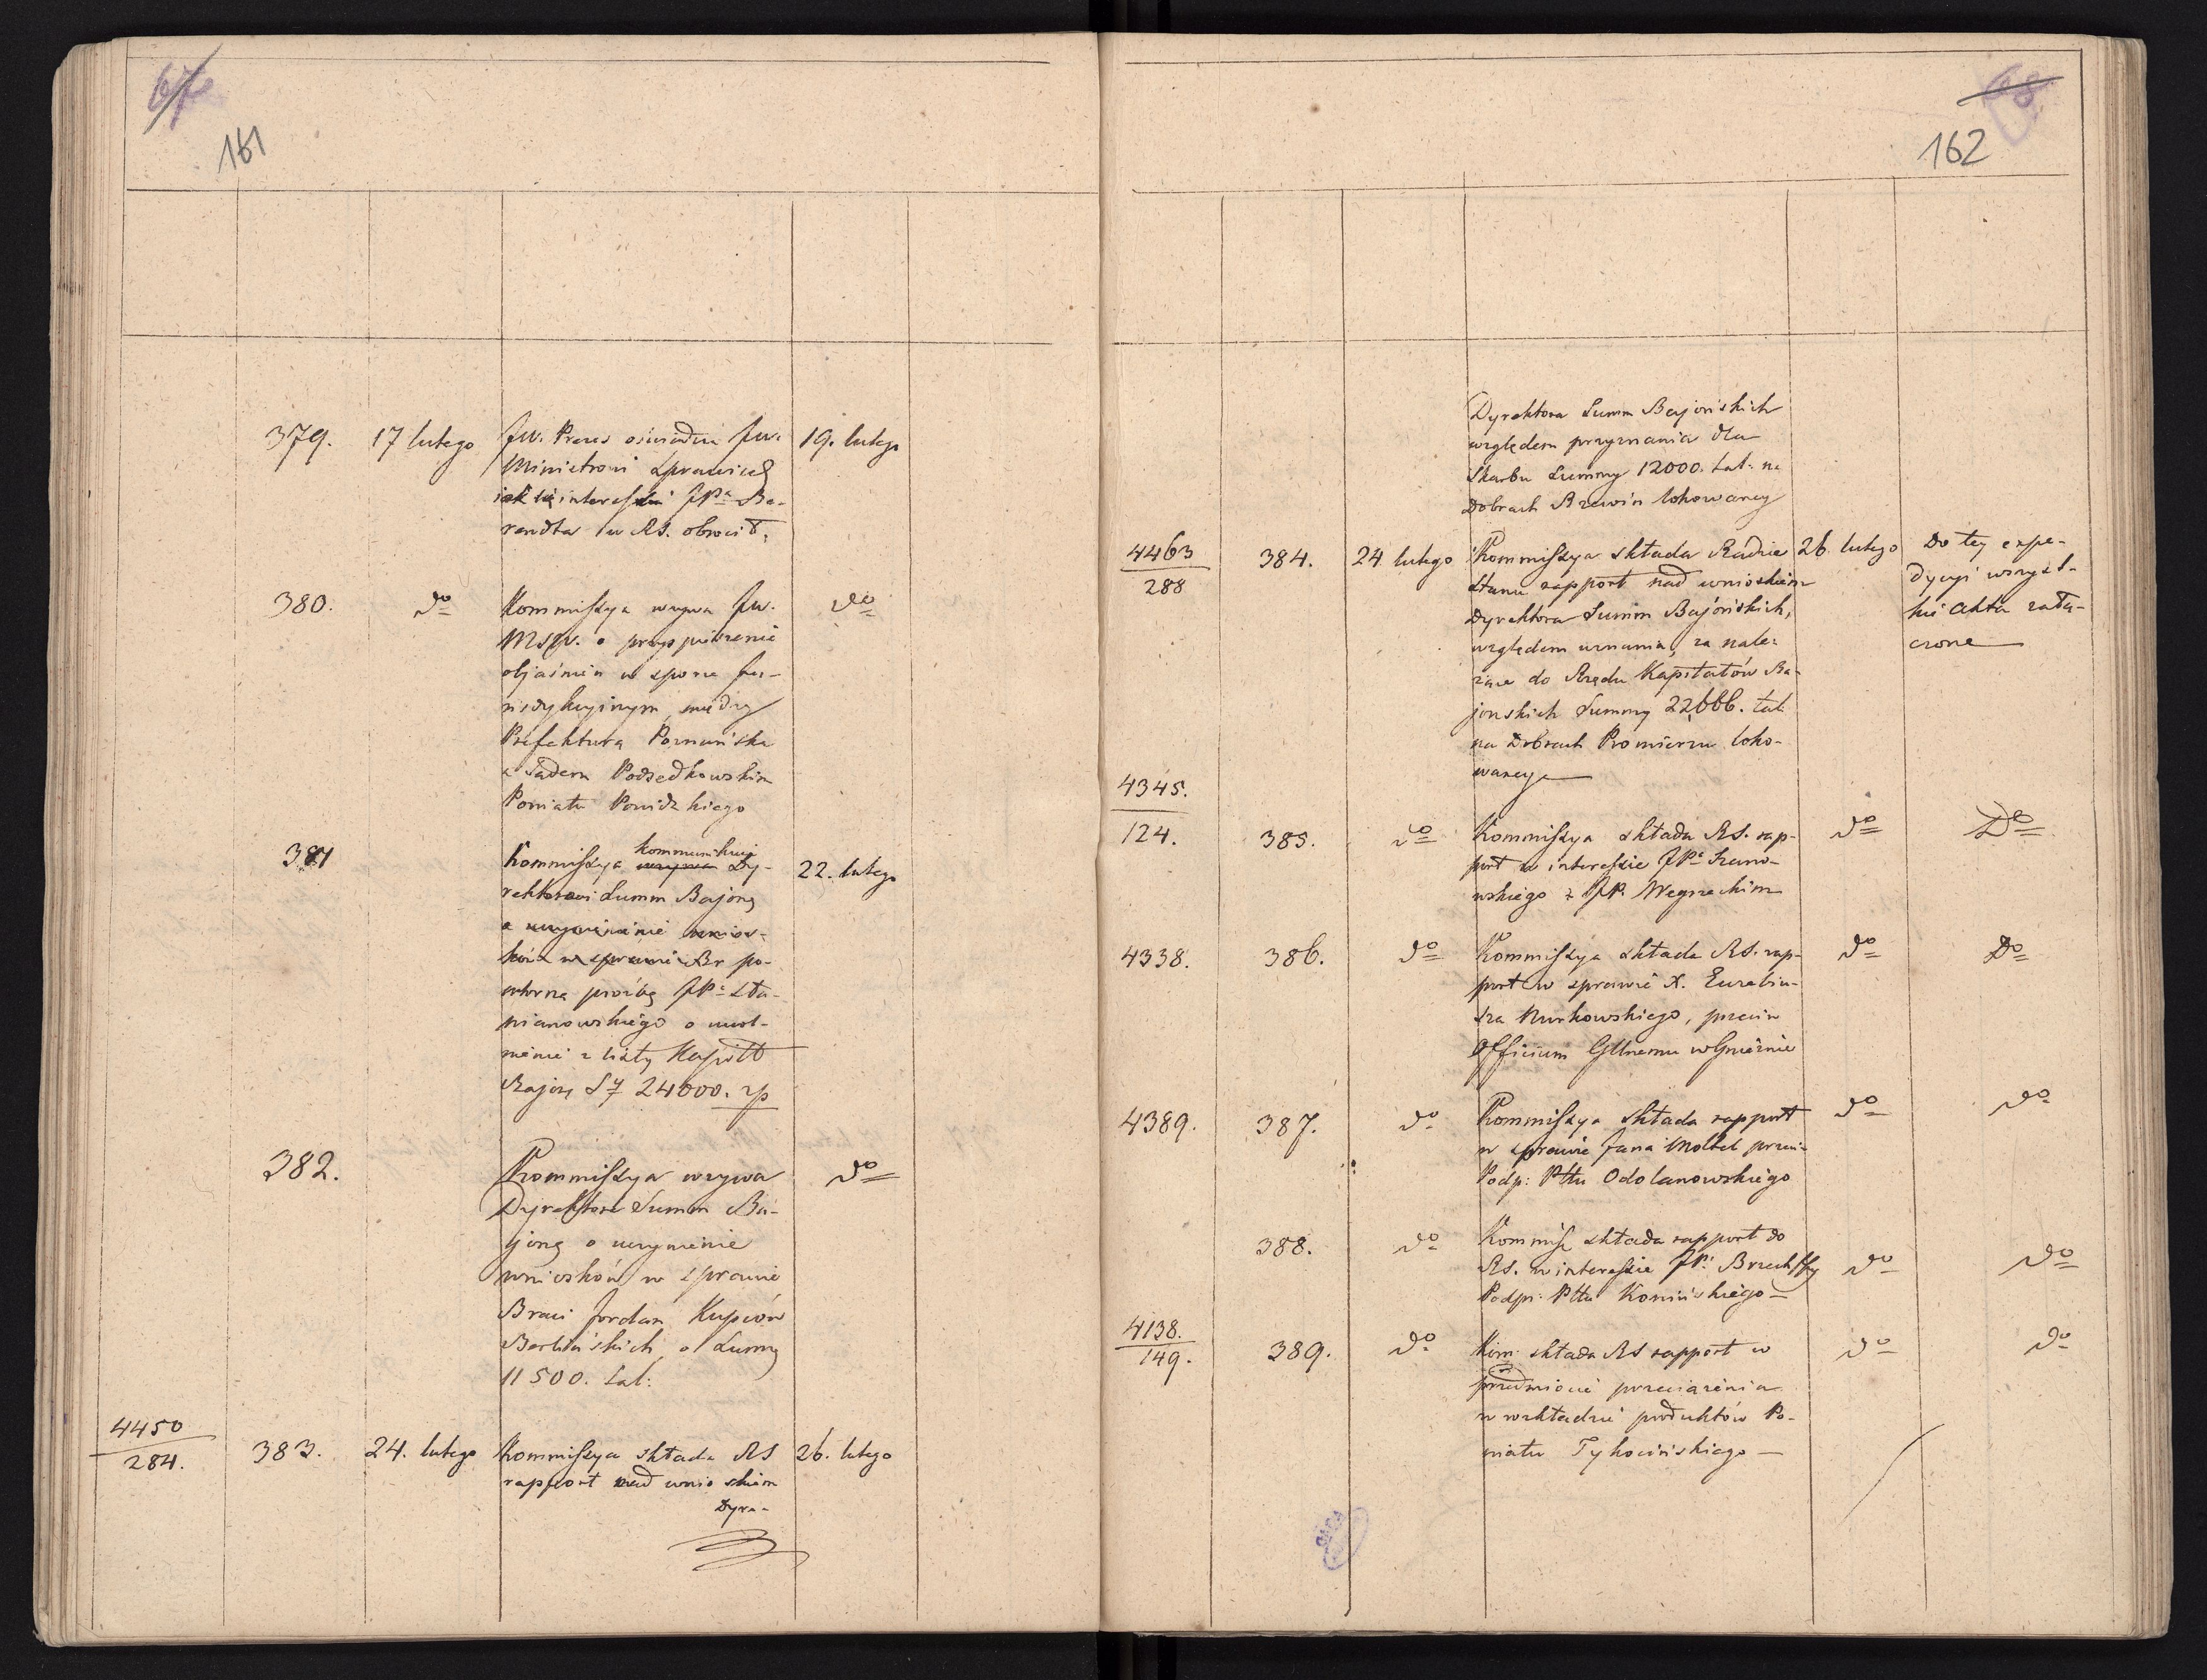 67
161
379. 17 lutego JW. Prezes oświadcza JW. 19. lutego
Ministrowi Sprawied
jak się interessa JPa Be-
randta w RS. obrócił.
380. do Kommissya wzywa JW. do
MSpr. o przyspieszenie
objaśnień w sporze Ju-
risdykcyinym, między
Prefekturą Poznańską
a Sądem Podsędkowskim
Powiatu Powidzkiego
381 Kommissya kommunikuje Dy- 22. lutego
rektorowi Summ Bajoń
o uczynienie wnios-
ków w sprawie Br po-
wtórną prośbę JPa Sta-
nianowskiego o uwol-
nienie z listy Kapitt
Bajoń Sy 24000. zp
382. Kommissya wzywa do
Dyrektora Summ Ba-
joń o uczynienie
wniosków w sprawie
Braci Jordan Kupców
Berlińskich o Summę
11500. tal:
4450
284. 383. 24. lutego Kommissya składa RS 26. lutego
rapport nad wnioskiem
Dyre-
68
162
Dyrektora Summ Bajońskich
względem przyznania dla
Skarbu Summy 12000. tal: na
Dobrach Brzewin lokowaney
4463
288 384. 24. lutego Kommissya składa Radzie 26. lutego Do tey expe-
Stanu rapport nad wnioskiem dycyi wszyst-
Dyrektora Summ Bajońskich, kie Akta załą-
względem uznania, za nale- czone
żące do Rzędu Kapitałów Ba-
jonskich Summy 22,666. tal
na Dobrach Promierzu loko-
waney
4345.
124. 385. do Kommissya składa RS. rap- do Do
port w interessie JPa Szano-
wskiego z JP. Węgrzeckim
4338. 386. do Kommissya składa RS. rap- do Do
port w sprawie X. Euzebiu-
sza Nurkowskiego, przeciw
Officium Gllnemu w Gnieźnie
4389. 387. do Kommissya składa rapport do do
w sprawie Jana Moltel przeciw
Podp: Pttu Odolanowskiego
388. do Kommiss składa rapport do
RS. w interessie JPa Brzechffy do do
Podp: Pttu Konińskiego
4138.
149. 389. do Kom: składa RS rapport w do do
przedmiocie przeciążenia
w rozkładzie produktów Po-
wiatu Tykocińskiego